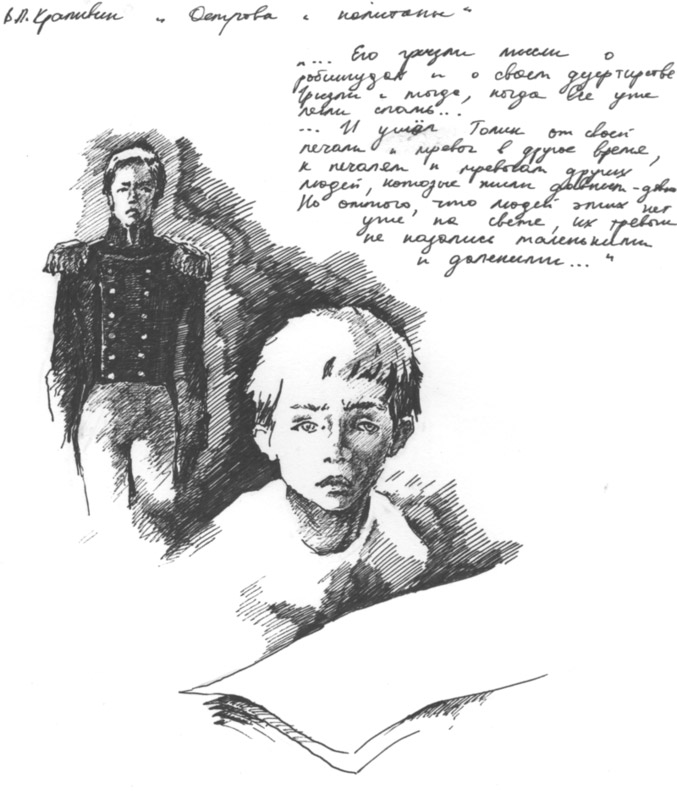 В.П. Крапивин „ Острова и капитаны“
„... Его грызли мысли о
робингудах и о своем дезертирстве
Грызли и тогда, когда все уже
легли спать...
... И ушёл Толик от своей
печали и тревог в другое время,
к печалям и тревогам других
людей, которые жили давным-давно
Но оттого, что людей этих нет
уже на свете, их тревоги
не казались маленькими
и далекими... “